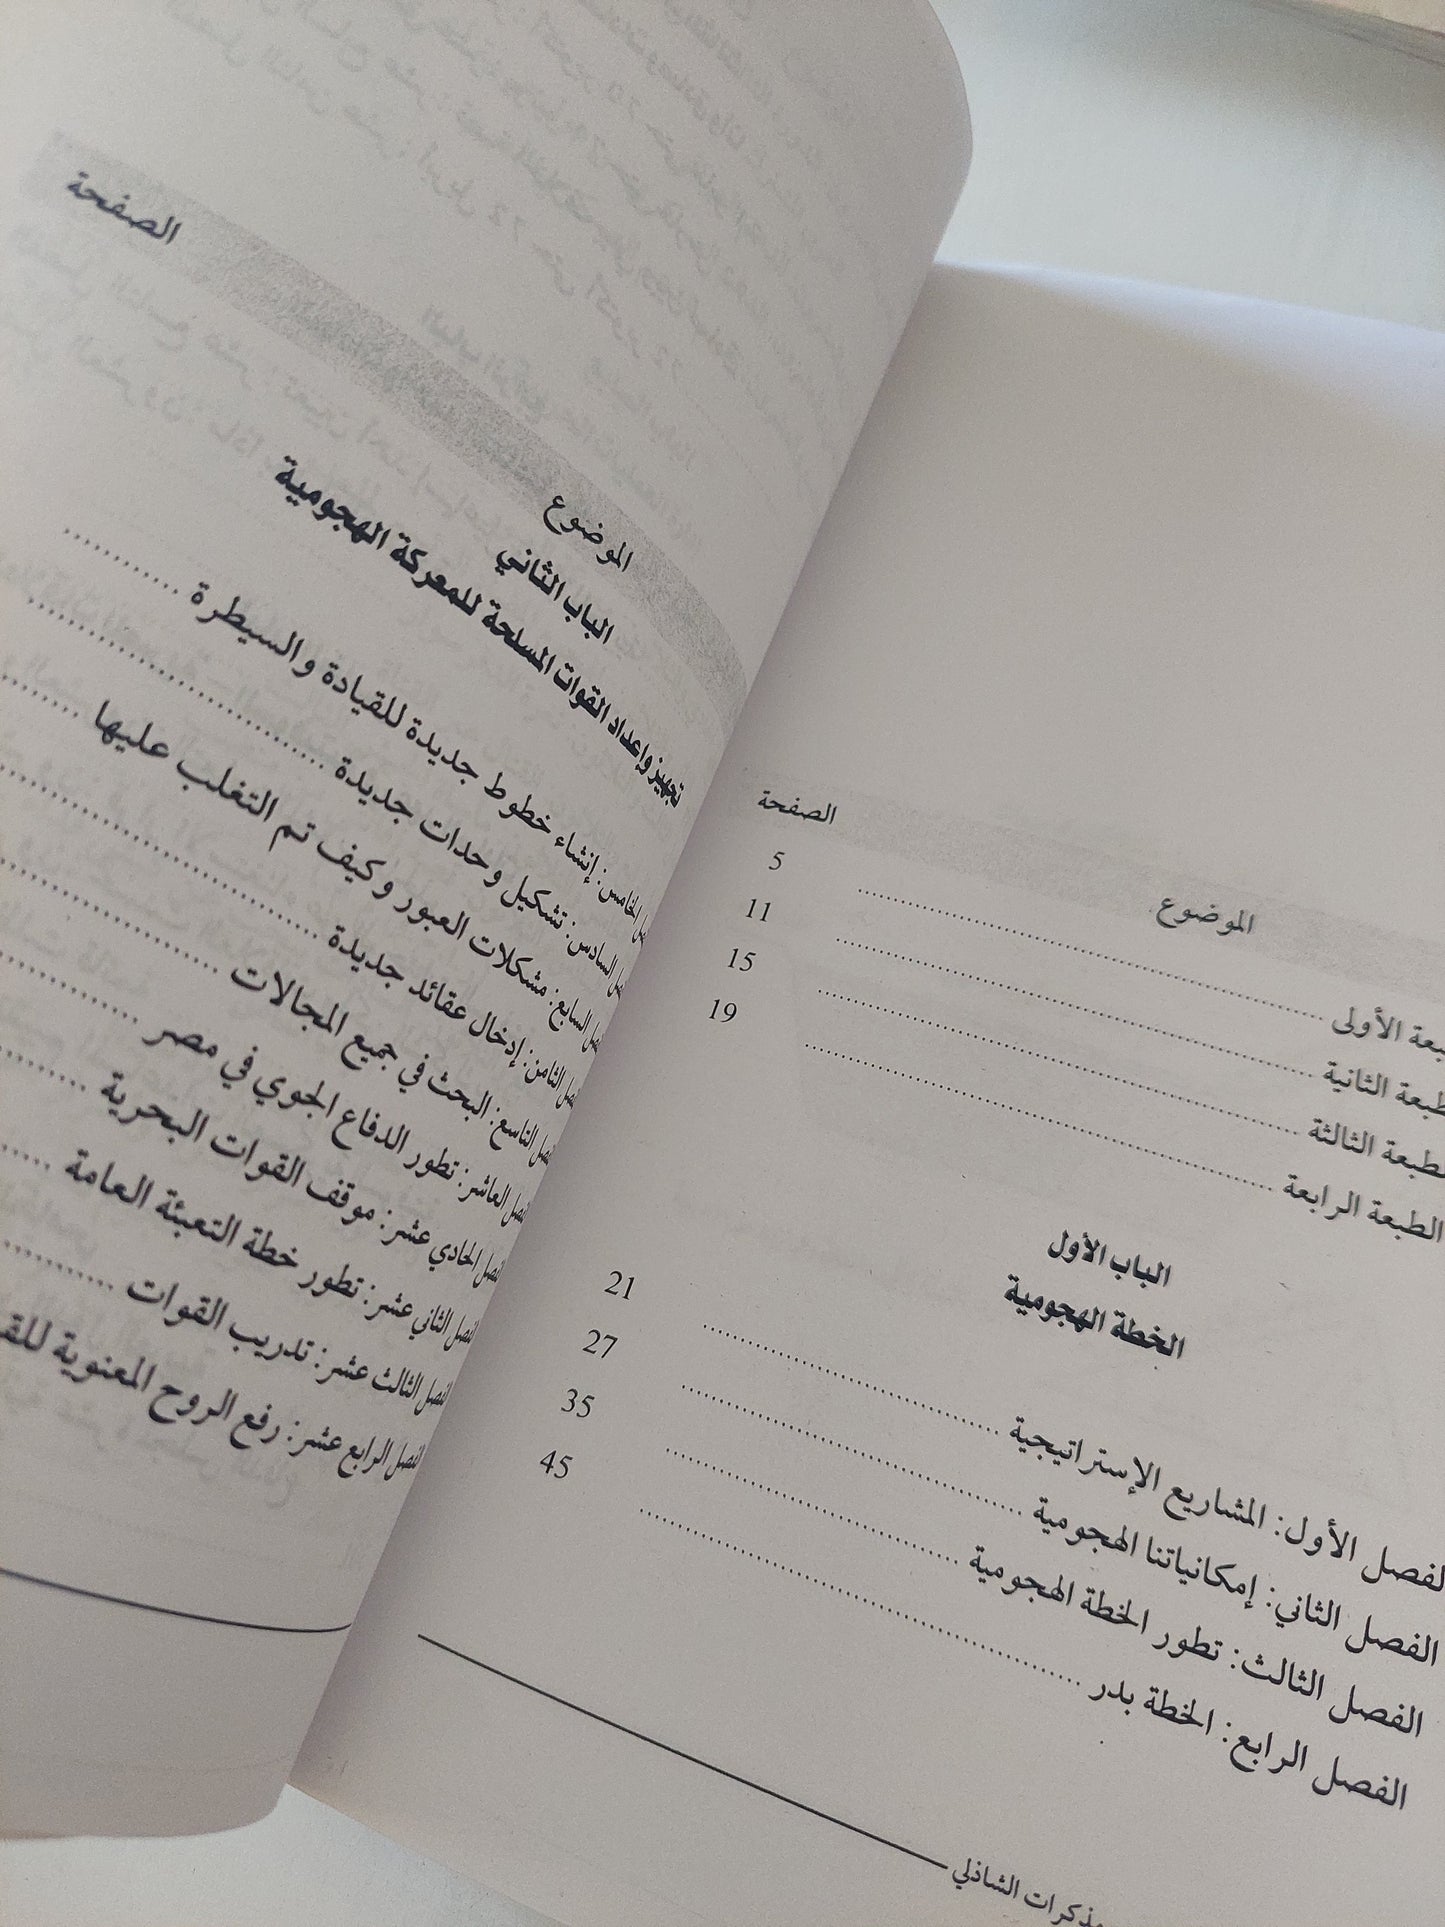 الموضوع الصفحة
الأولى 5
الثانية 11
الثالثة 15
الطبعة الرابعة 19
الباب الأول
الخطة الهجومية
الفصل الأول: المشاريع الإستراتيجية 21
الفصل الثاني: إمكانياتنا الهجومية 27
الفصل الثالث: تطور الخطة الهجومية 35
الفصل الرابع: الخطة بدر 45
مذكرات الشاذلي
الموضوع الصفحة
الباب الثاني
تجهيز وإعداد القوات المسلحة للمعركة الهجومية
الخامس: إنشاء خطوط جديدة للقيادة والسيطرة
السادس: تشكيل وحدات جديدة
السابع: مشكلات العبور وكيف تم التغلب عليها
الثامن: إدخال عقائد جديدة
التاسع: البحث في جميع المجالات
العاشر: تطور الدفاع الجوي في مصر
الفصل الحادي عشر: موقف القوات البحرية
الفصل الثاني عشر: تطور خطة التعبئة العامة
الفصل الثالث عشر: تدريب القوات
الفصل الرابع عشر: رفع الروح المعنوية